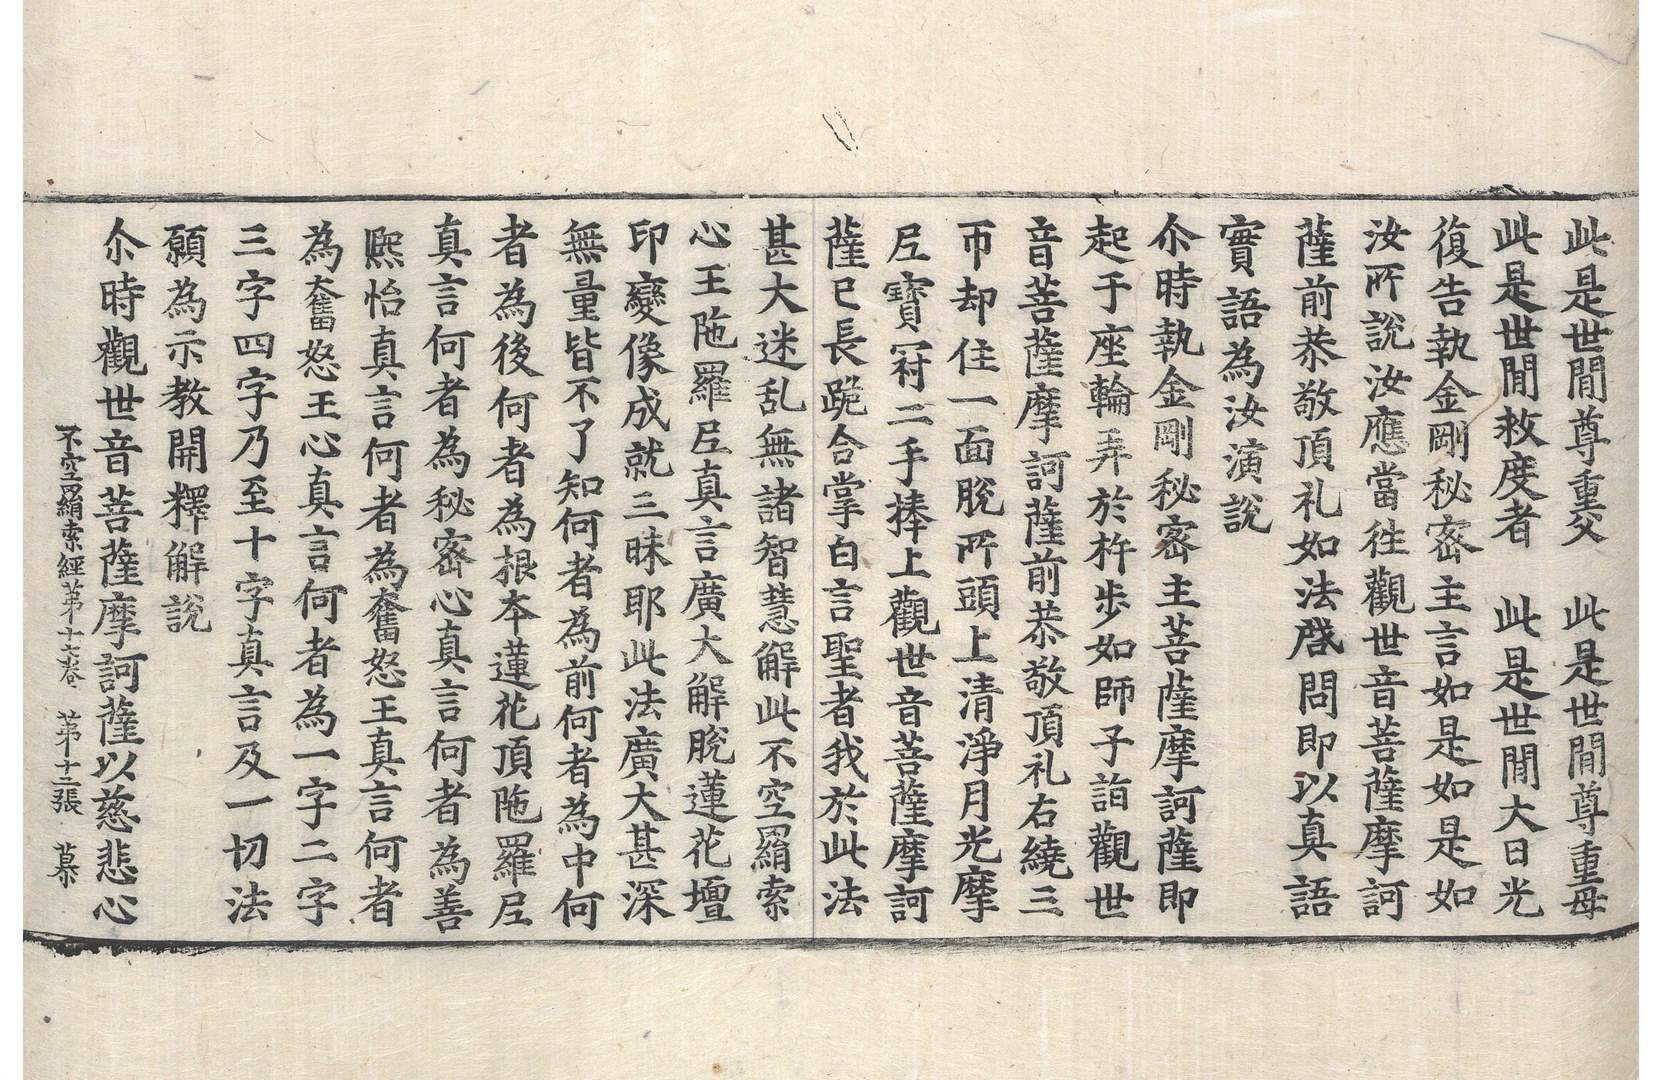 此是世閒尊重父　此是世閒尊重母
此是世閒救度者　此是世閒大日光
復告執金剛秘密主言如是如是如
汝所說汝應當往觀世音菩薩摩訶
薩前恭敬頂礼如法啓問即以真語
實語為汝演說
尒時執金剛秘密主菩薩摩訶薩即
起于座輪弄於杵步如師子詣觀世
音菩薩摩訶薩前恭敬頂礼右繞三
帀却住一面脫所頭上清淨月光摩
尼寶冠二手捧上觀世音菩薩摩訶
薩已長跪合掌白言聖者我於此法
甚大迷乱無諸智慧解此不空羂索
心王陁羅尼真言廣大解脫蓮花壇
印變像成就三昧耶此法廣大甚深
無量皆不了知何者為前何者為中何
者為後何者為根本蓮花頂陁羅尼
真言何者為秘密心真言何者為善
熈怡真言何者為奮怒王真言何者
為奮怒王心真言何者為一字二字
三字四字乃至十字真言及一切法
願為示教開釋解說
尒時觀世音菩薩摩訶薩以慈悲心
不空羂索經苐十七卷　苐十二張　慕